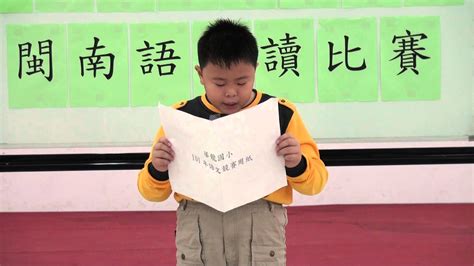 閩南語 讀比賽
國小
101年語文競賽用紙